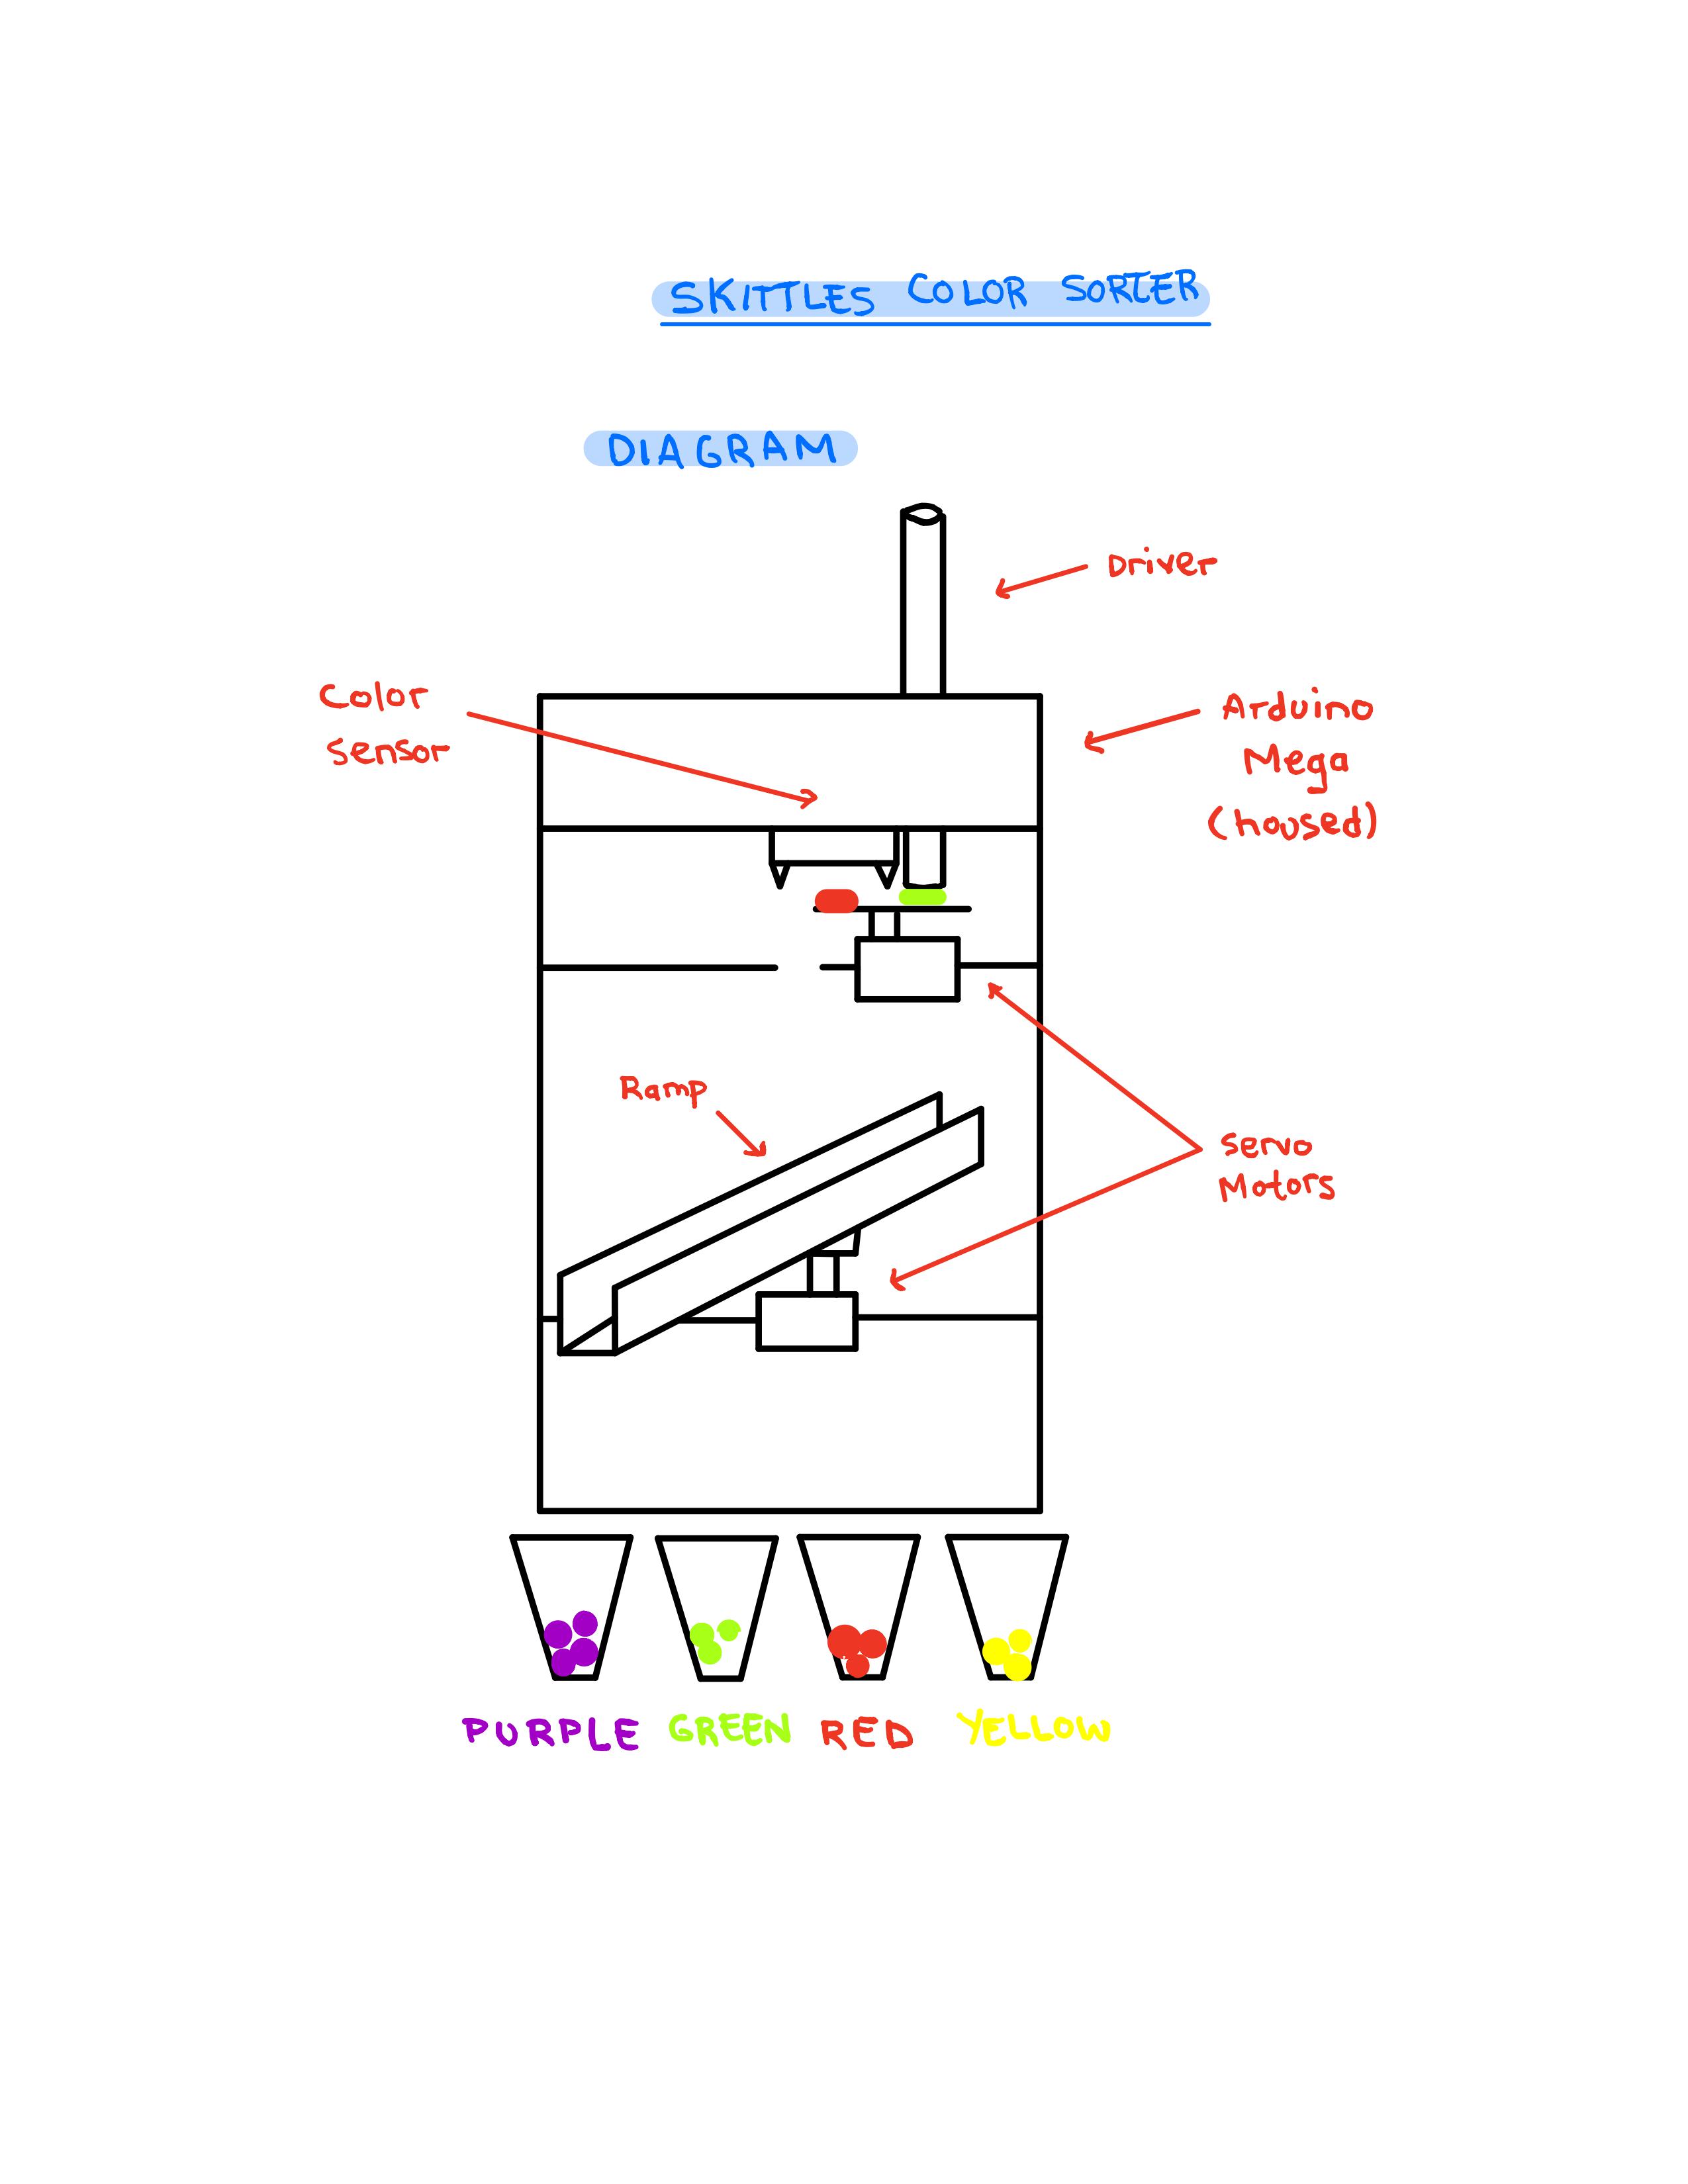 SKITTLES COLOR SORTER
DIAGRAM
Driver
Color
Sensor
Arduino
Mega
(housed)
Ramp
Servo
Motors
PURPLE GREEN RED YELLOW